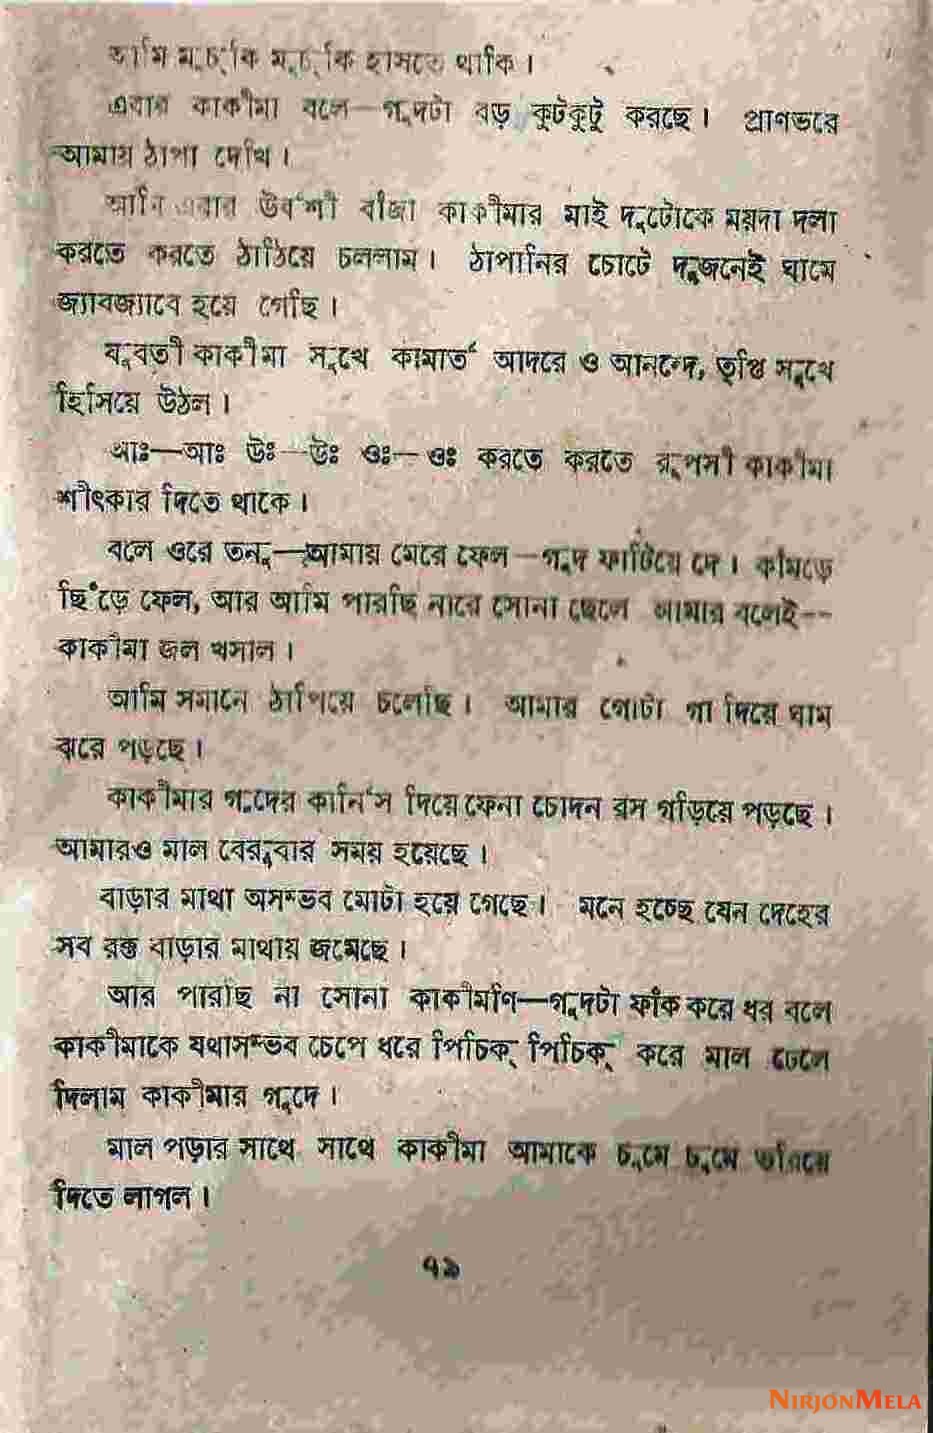 আমি মুচকি মুচকি হাসতে থাকি।
এবার কাকীমা বলে—গুদটা বড় কুটকুটু করছে। প্রাণভরে
আমায় ঠাপা দেখি।
আমি এবার উর্বশী বাঁজা কাকীমার মাই দুটোকে ময়দা দলা
করতে করতে ঠাঠিয়ে চললাম। ঠাপানির চোটে দুজনেই ঘামে
জ্যাবজ্যাবে হয়ে গেছি।
যুবতী কাকীমা সুখে কামার্ত আদরে ও আনন্দে, তৃপ্তি সুখে
হিসিয়ে উঠল।
আঃ—আঃ উঃ—উঃ ওঃ—ওঃ করতে করতে রূপসী কাকীমা
শীৎকার দিতে থাকে।
বলে ওরে তনু—আমায় মেরে ফেল—গুদ ফাটিয়ে দে। কামড়ে
ছিঁড়ে ফেল, আর আমি পারছি নারে সোনা ছেলে আমার বলেই--
কাকীমা জল খসাল।
আমি সমানে ঠাপিয়ে চলেছি। আমার গোটা গা দিয়ে ঘাম
ঝরে পড়ছে।
কাকীমার গুদের কার্নিস দিয়ে ফেনা চোদন রস গড়িয়ে পড়ছে।
আমারও মাল বেরুবার সময় হয়েছে।
বাড়ার মাথা অসম্ভব মোটা হয়ে গেছে। মনে হচ্ছে যেন দেহের
সব রক্ত বাড়ার মাথায় জমেছে।
আর পারছি না সোনা কাকীমণি—গুদটা ফাঁক করে ধর বলে
কাকীমাকে যথাসম্ভব চেপে ধরে পিচিক্ পিচিক্ করে মাল ঢেলে
দিলাম কাকীমার গুদে।
মাল পড়ার সাথে সাথে কাকীমা আমাকে চুমে চুমে ভরিয়ে
দিতে লাগল।
৭৯
NIRJONMELA